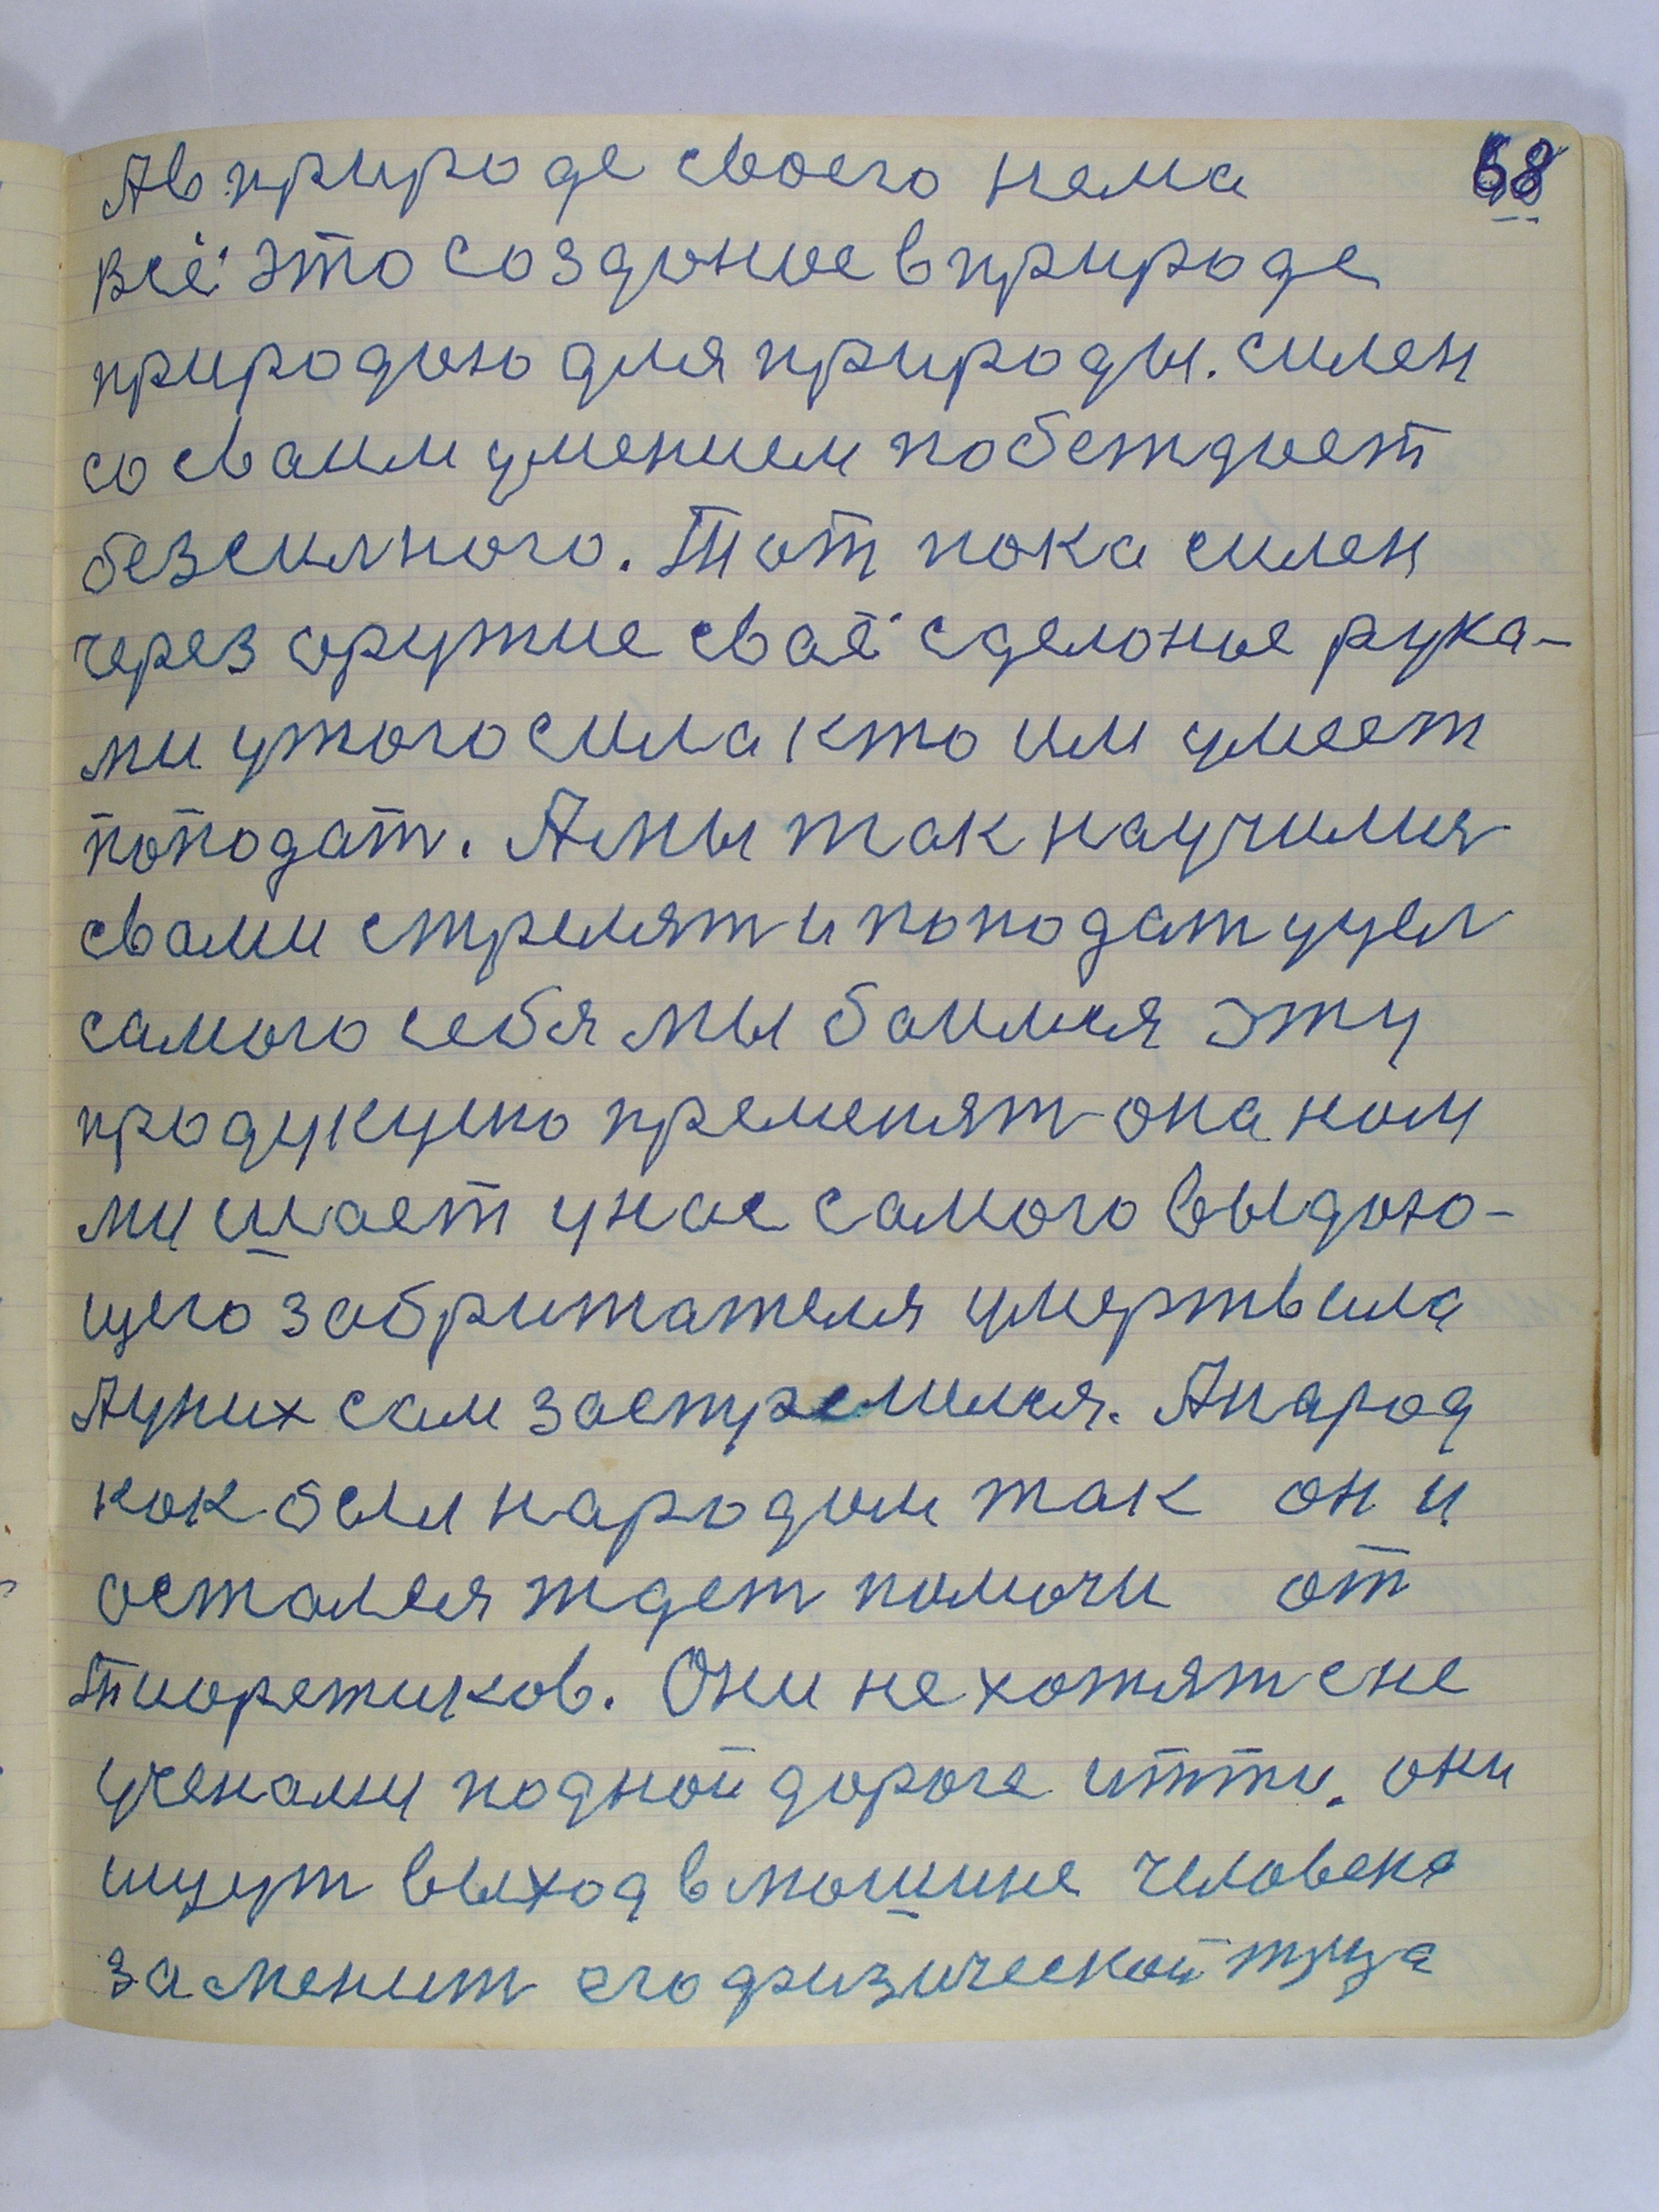 68
Ав природе своего нема
всё это создоное в природе
природою для природы. силен
со сваим умением побеждает
безсилного. Тот пока силен
через оружие сваё сделоное рука-
ми утого сила кто им умеет
поподат. Амы так научимся
свами стрелят и поподат уцел
самого себя мы боимся эту
продукцию пременят она нам
мишает унас самого выдаю-
щего забритателя умертвила
Ауних сам застрелился. Анарод
как был народом так он и
остался ждет помочи от
Тиоретиков. Они нехотят сне
ученами подной дороге итти. они
ищут выход в машине человека
заменит его физической труд